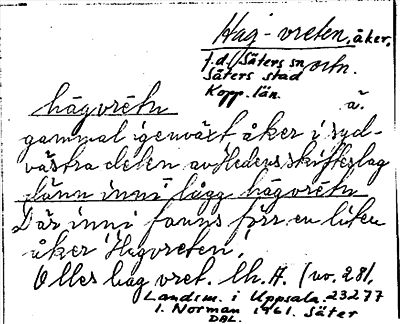 Hag-vreten, åker,
f.d. Säters sn
Säters stad
Kopp. län.
hāgvrētn
gammal igenväxt åker i syd-
västra delen av Hedens skifteslag
dänn inni lågg hāgvretn
Där inni fanns förr en liten
åker Hagvreten.
Olles hag vret. lh. A. (no. 28).
Landsm. i Uppsala 23277
I. Norman 1961. Säter
DAL.